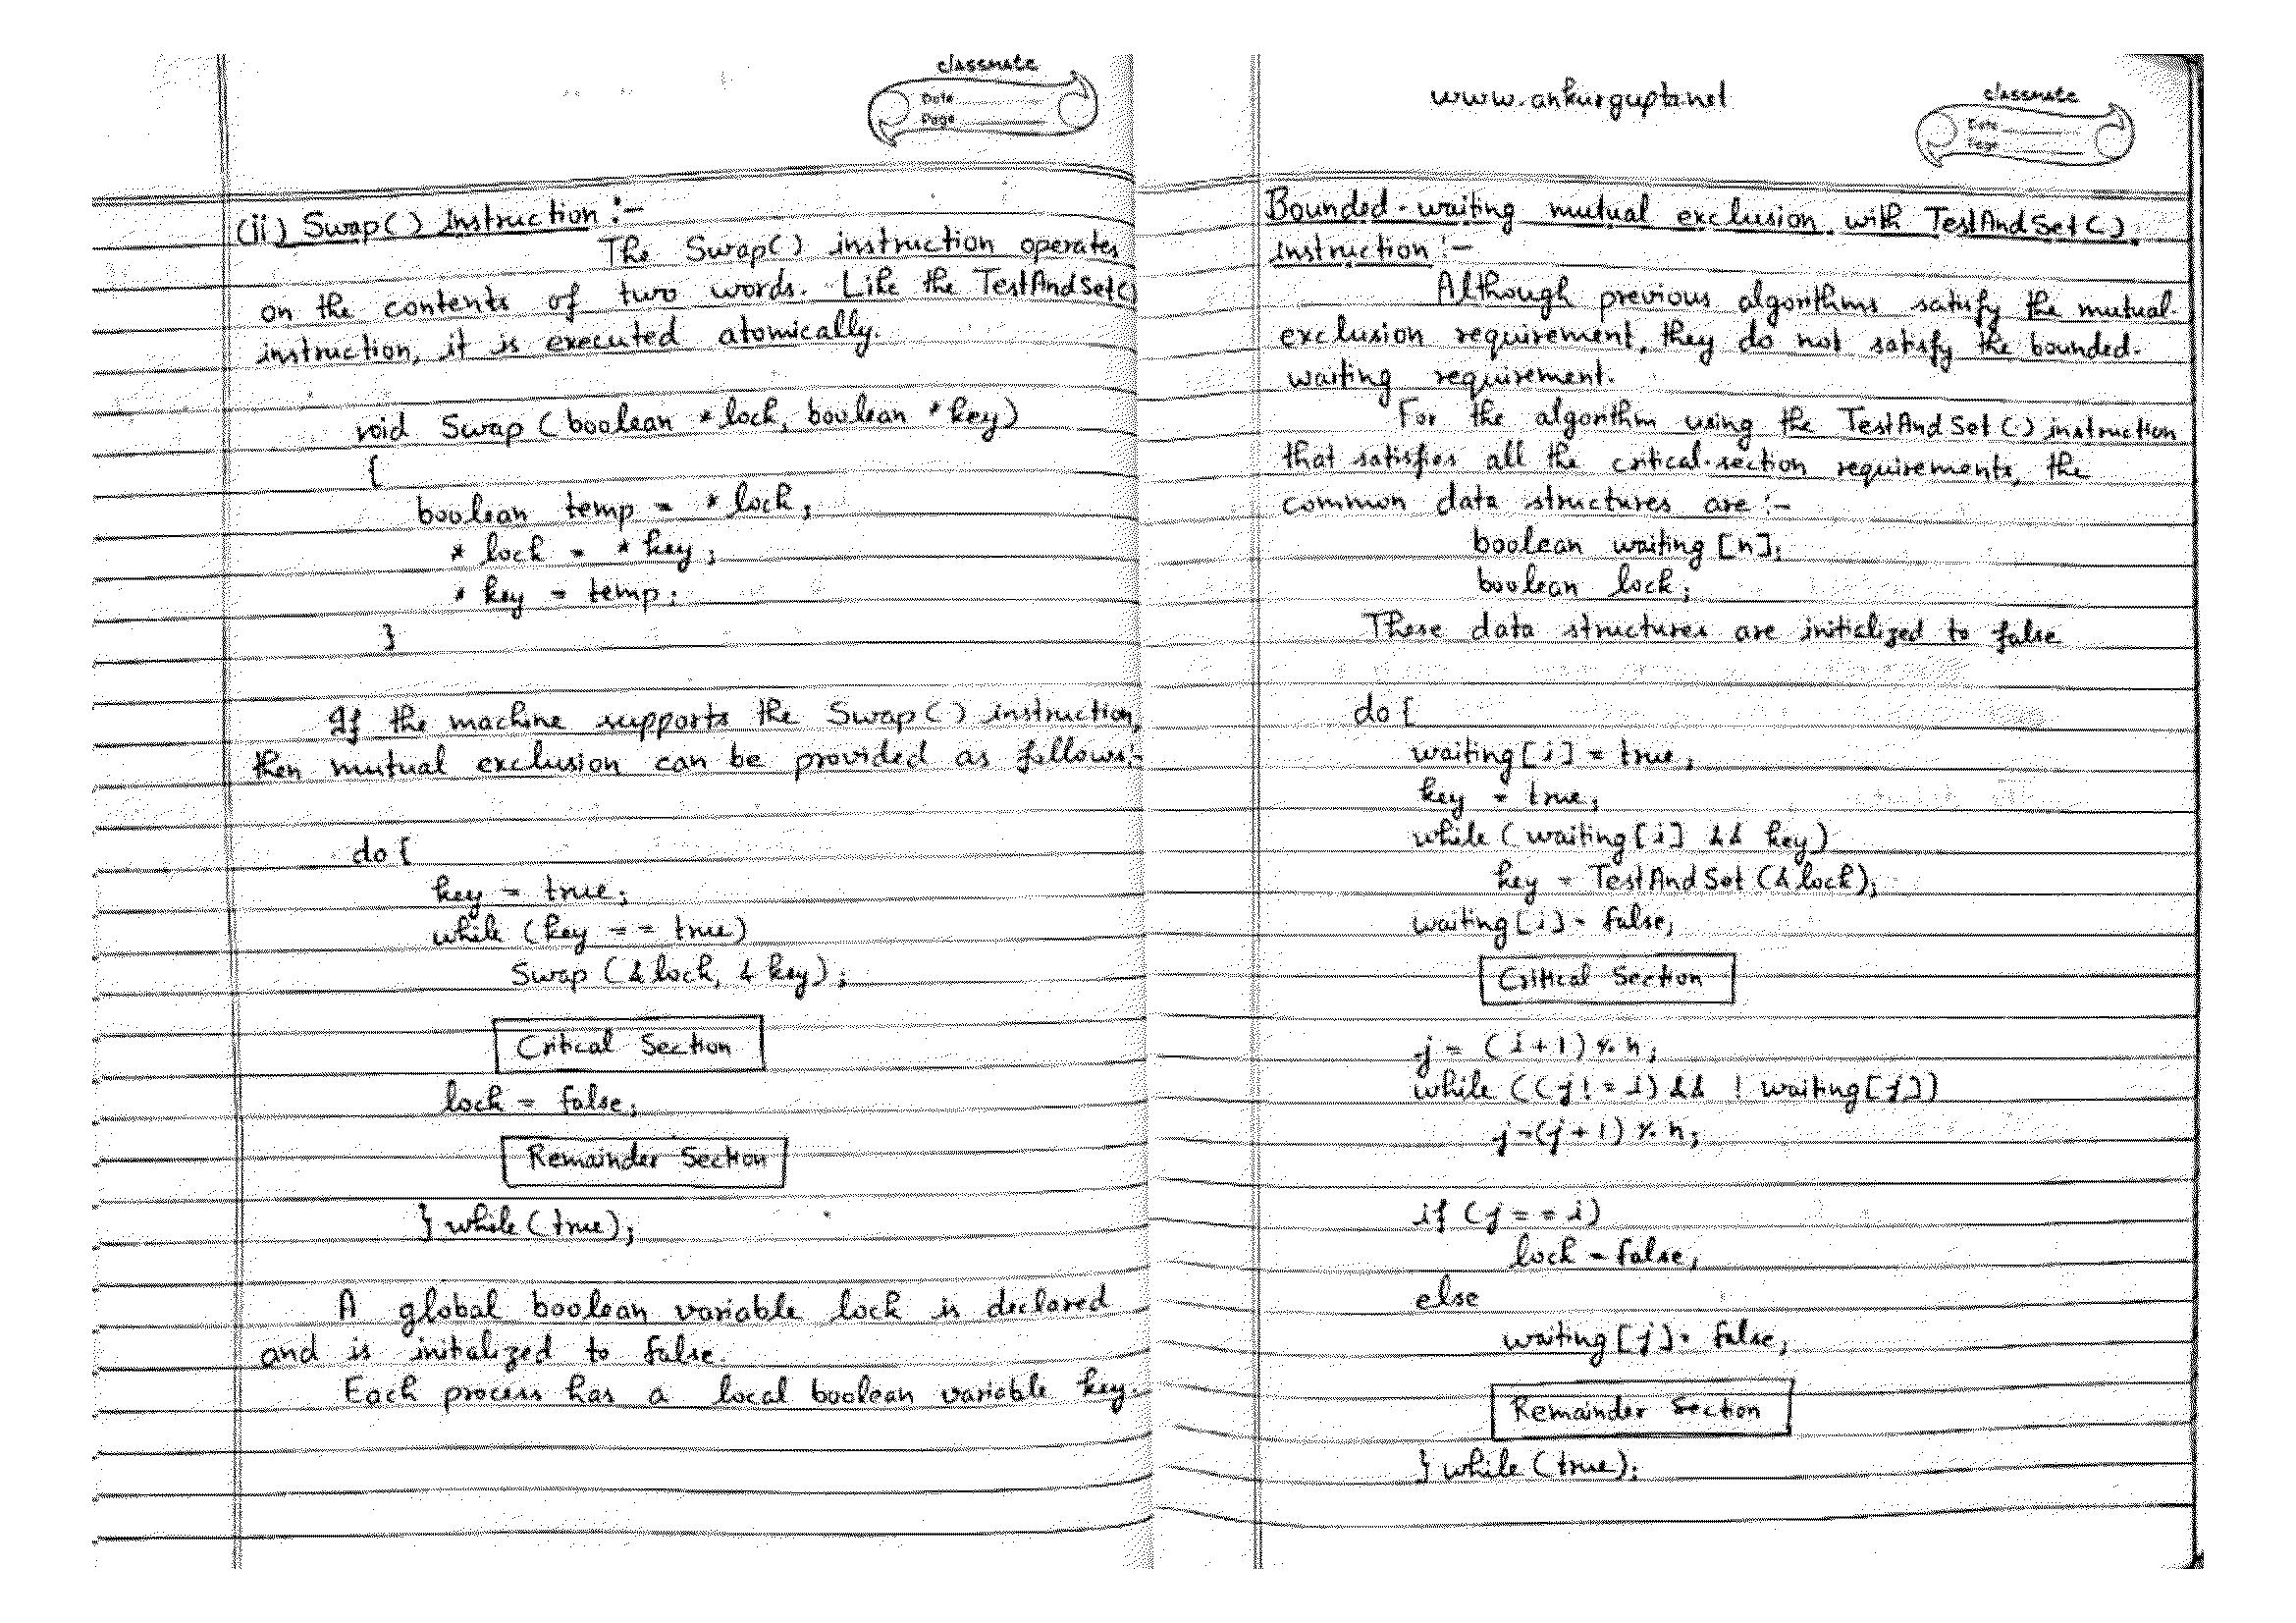 classmate
Date
Page
(ii) Swap() Instruction :-
The Swap() instruction operates
on the contents of two words. Like the TestAndSet()
instruction, it is executed atomically.
void Swap (boolean *lock, boolean *key)
{
boolean temp = *lock;
* lock = * key;
* key = temp;
}
If the machine supports the Swap() instruction,
then mutual exclusion can be provided as follows:-
do {
key = true;
while (key == true)
Swap (&lock, &key);
Critical Section
lock = false;
Remainder Section
} while (true);
A global boolean variable lock is declared
and is initialized to false.
Each process has a local boolean variable key.
www.ankurgupta.net
classmate
Date
Page
Bounded-waiting mutual exclusion with TestAndSet()
instruction :-
Although previous algorithms satisfy the mutual-
exclusion requirement, they do not satisfy the bounded-
waiting requirement.
For the algorithm using the TestAndSet() instruction
that satisfies all the critical-section requirements, the
common data structures are :-
boolean waiting [n];
boolean lock;
These data structures are initialized to false
do {
waiting[i] = true;
key = true;
while (waiting[i] && key)
key = TestAndSet (&lock);
waiting[i] = false;
Critical Section
j = (i+1) % n;
while ((j != i) && ! waiting[j])
j = (j+1) % n;
if (j == i)
lock = false;
else
waiting[j] = false;
Remainder Section
} while (true);